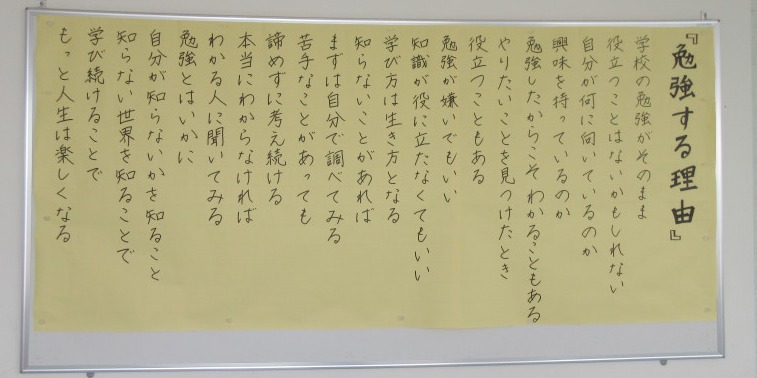 『勉強する理由』
学校の勉強がそのまま
役立つことはないかもしれない
自分が何に向いているのか
興味を持っているのか
勉強したからこそわかることもある
やりたいことを見つけたとき
役立つこともある
勉強が嫌いでもいい
知識が役に立たなくてもいい
学び方は生き方となる
知らないことがあれば
まずは自分で調べてみる
苦手なことがあっても
諦めずに考え続ける
本当にわからなければ
わかる人に聞いてみる
勉強とはいかに
自分が知らないかを知ること
知らない世界を知ることで
学び続けることで
もっと人生は楽しくなる